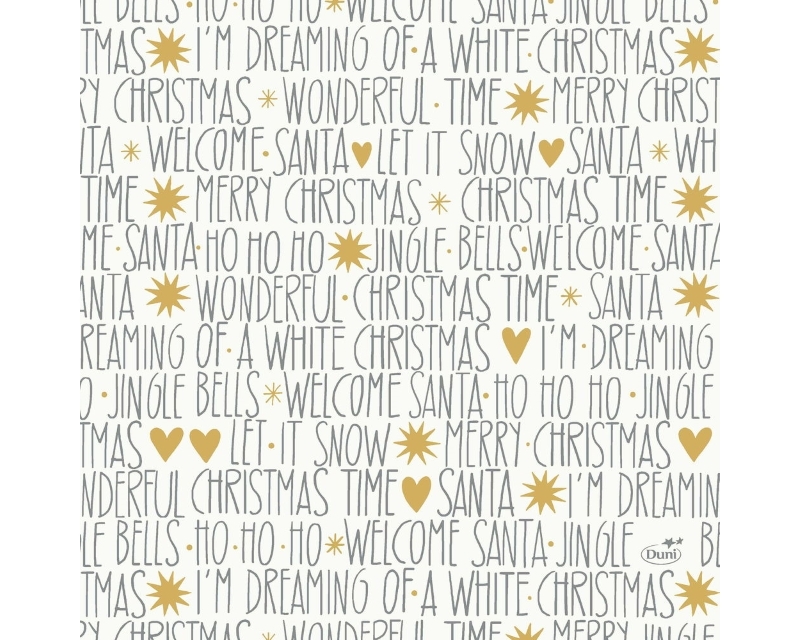 LE BELLS HO HO HO WELCOME SANTA JINGLE BELLS
TMAS I'M DREAMING OF A WHITE CHRISTMAS
RY CHRISTMAS WONDERFUL TIME MERRY CHRIST
TA WELCOME SANTA LET IT SNOW SANTA WH
TIME MERRY CHRISTMAS CHRISTMAS TIME
ME SANTA HO HO HO JINGLE BELLS WELCOME SANTA
ANTA WONDERFUL CHRISTMAS TIME SANTA
REAMING OF A WHITE CHRISTMAS I'M DREAMING
O JINGLE BELLS WELCOME SANTA HO HO HO JINGLE
TMAS LET IT SNOW MERRY CHRISTMAS
NDERFUL CHRISTMAS TIME SANTA I'M DREAMIN
LE BELLS HO HO HO WELCOME SANTA JINGLE BE
Duni
TMAS I'M DREAMING OF A WHITE CHRISTMAS
RY CHRISTMAS WONDERFUL TIME MERRY CHRIST